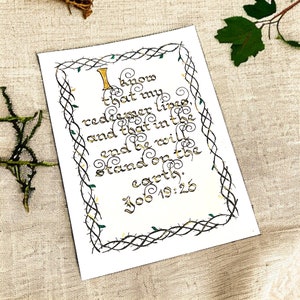 I know
that my
redeemer lives,
and that in the
end he will
stand on the
earth.
Job 19:25